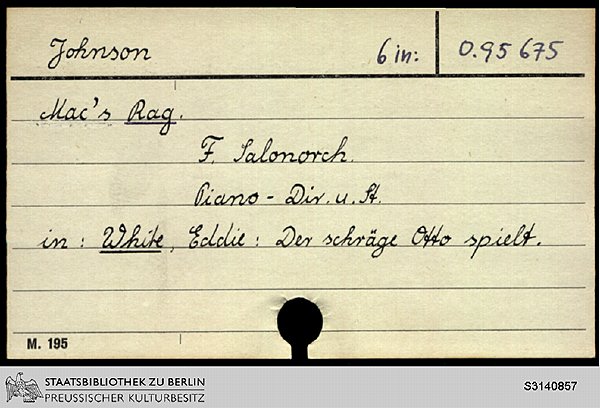 Johnson 6 in: O.95 675
Mac's Rag.
F. Salonorch.
Piano-Dir. u. St.
in: White, Eddie: Der schräge Otto spielt.
M. 195
STAATSBIBLIOTHEK ZU BERLIN
PREUSSISCHER KULTURBESITZ
S3140857